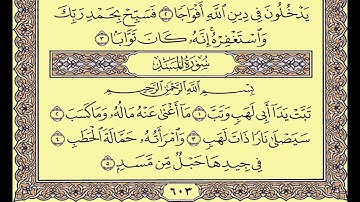 يَدْخُلُونَ فِى دِينِ ٱللَّهِ أَفْوَاجًا ٢ فَسَبِّحْ بِحَمْدِ رَبِّكَ
وَٱسْتَغْفِرْهُ إِنَّهُۥ كَانَ تَوَّابًۢا ٣
سُورَةُ المَسَدِ
بِسْمِ ٱللَّهِ ٱلرَّحْمَٰنِ ٱلرَّحِيمِ
تَبَّتْ يَدَآ أَبِى لَهَبٍ وَتَبَّ ١ مَآ أَغْنَىٰ عَنْهُ مَالُهُۥ وَمَا كَسَبَ ٢
سَيَصْلَىٰ نَارًا ذَاتَ لَهَبٍ ٣ وَٱمْرَأَتُهُۥ حَمَّالَةَ ٱلْحَطَبِ ٤
فِى جِيدِهَا حَبْلٌ مِّن مَّسَدٍۭ ٥
٦٠٣